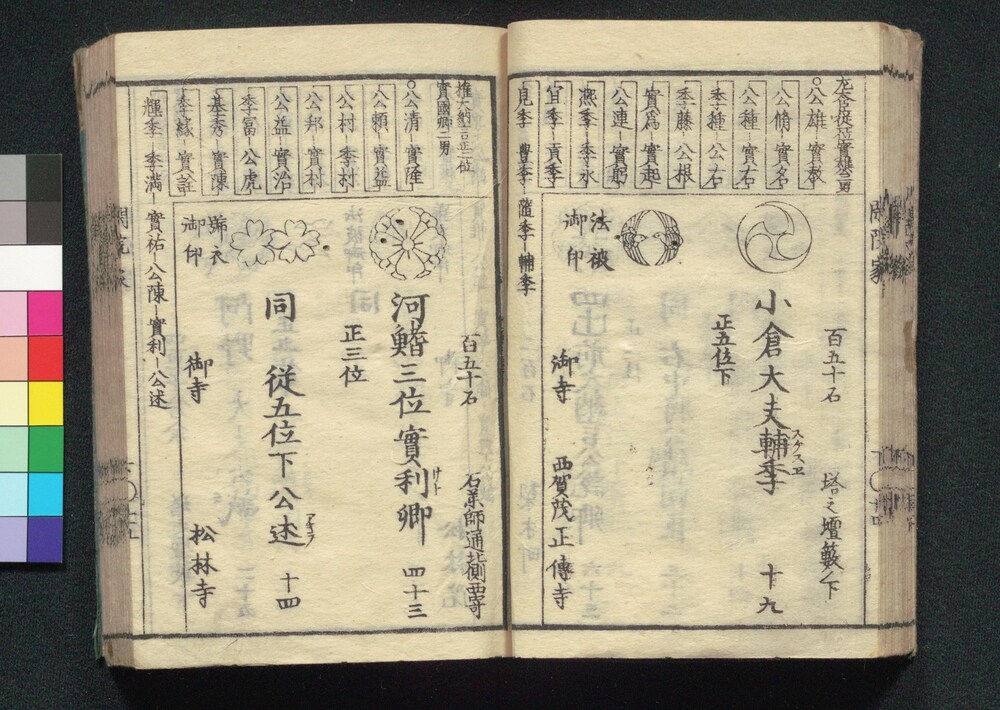 左大臣従一位實雄公男
○公雄 實教
公脩 實名
公種 實右
季種 公右
季藤 公根
實爲 實起
公連 實躬
凞季 季永
宜季 貢季
見季 豊季
隨季 輔季
百五十石
塔之壇藪ノ下
小倉大夫輔季 十九
スケスヱ
正五位下
法被
御印
御寺
西賀茂正傳寺
閑院家
權大納言正二位
實國卿二男
○公清 實隆
公頼 實益
公村 季村
公邦 實村
公益 實治
季冨 公虎
基秀 實陳
季縁 實詮
輝季 季満
實祐 公陳 實利 公述
百五十石
石薬師通北側西寄
河鰭三位實利卿 四十三
サト
正三位
同 從五位下公述 十四
アキラ
御印
御寺
松林寺
閑院家